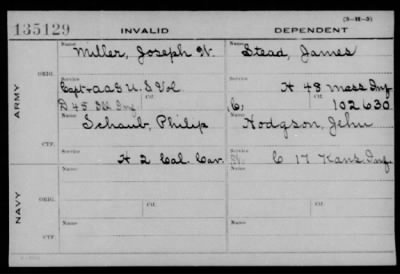 (3-H-3)
135129 INVALID DEPENDENT
Name Miller, Joseph W. Name Stead, James
ORIG. Service Service
ARMY Capt + AAG U.S. Vol H 48 Mass Inf
D 45 Ill Inf Ctf. 102630
Name Schaub, Philip Name Hodgson, Jehu
CTF. Service H 2 Cal. Cav. Service C 17 Kans Inf
Name Name
NAVY ORIG. Service Ctf. Service Ctf.
Name Name
CTF.